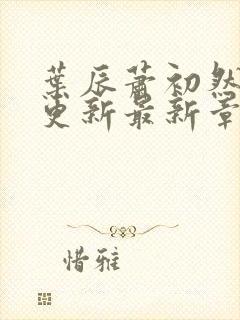 葉辰蕭初然
更新最新章
惜雅